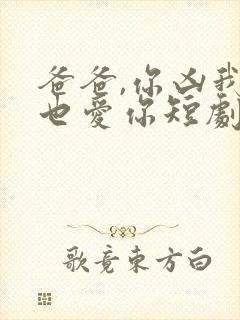 爸爸,你凶我
也爱你短劇
歌竟東方白